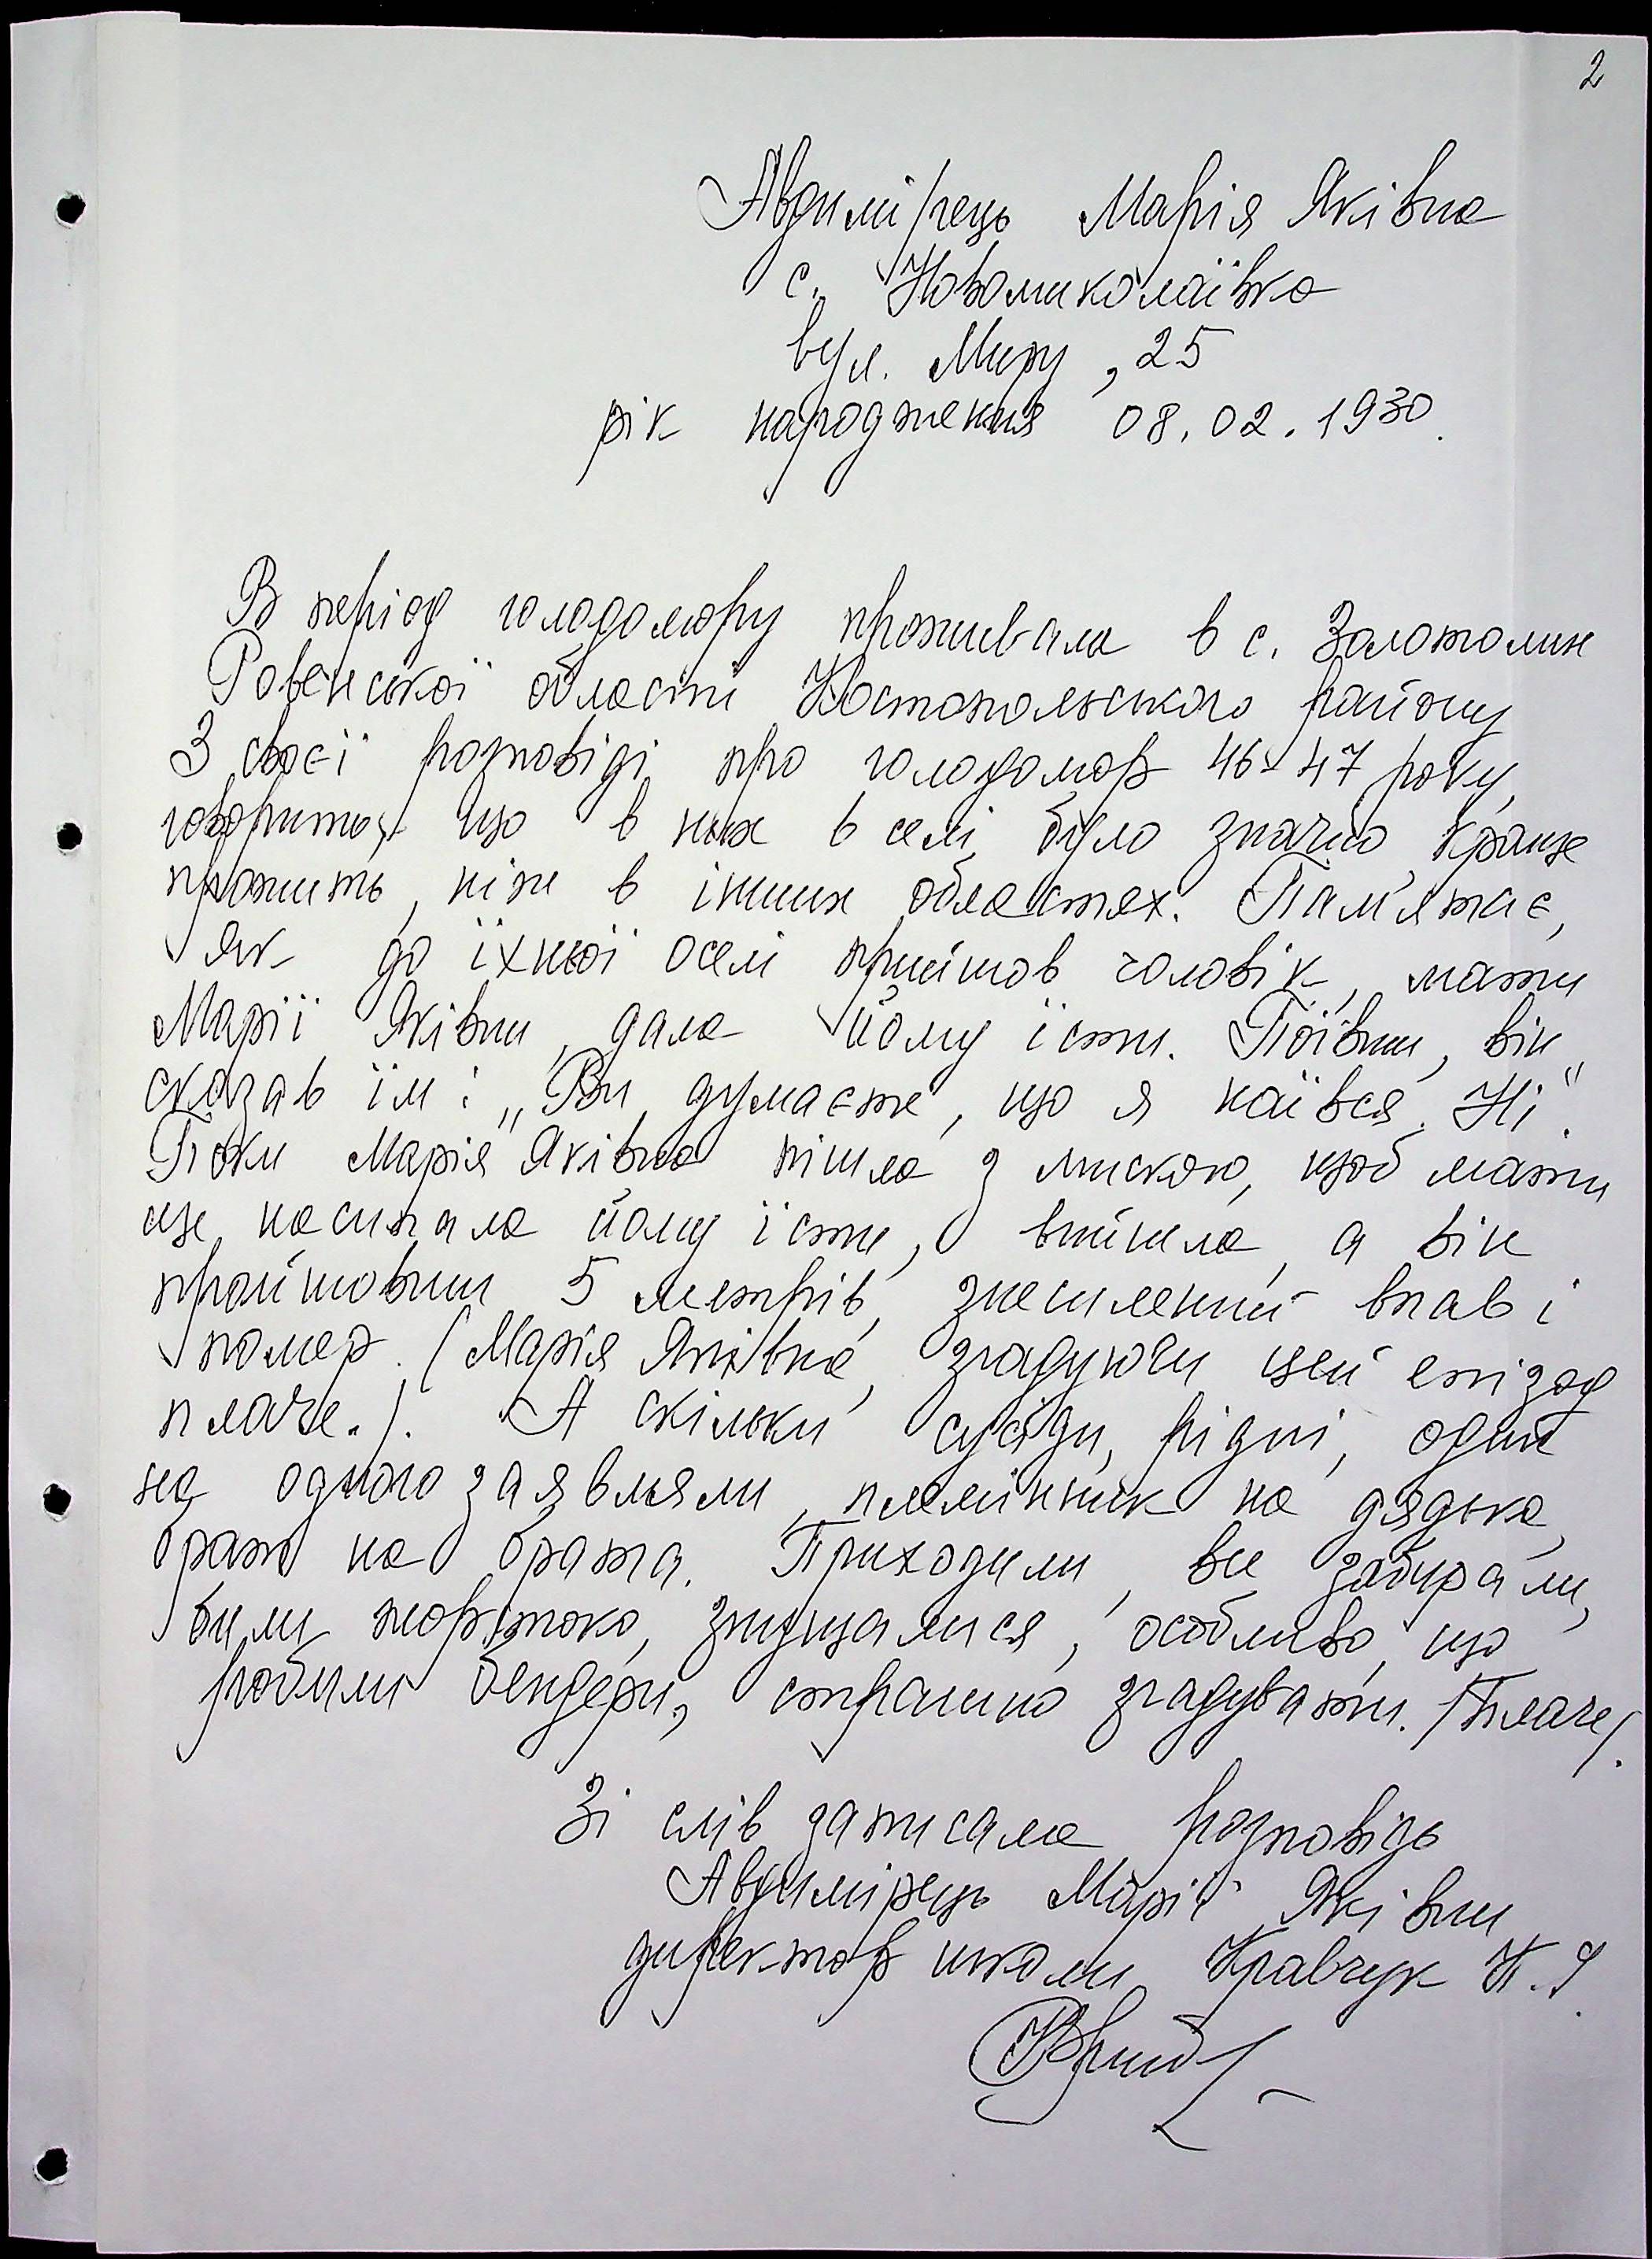 2
Авдимірець Марія Яківна
с. Новомиколаївка
вул. Миру, 25
рік народження 08.02.1930.
В період голодомору проживала в с. Золотолин
Ровенської області Костопольського району
З своєї розповіді про голодомор 46-47 року,
говорить, що в них в селі було значно краще
прожить, ніж в інших областях. Пам'ятає,
як до їхньої оселі прийшов чоловік, мати
Марії Яківни дала йому їсти. Поївши, він
сказав їм: „Ви думаєте, що я наївся. Ні".
Поки Марія Яківна пішла з мискою, щоб мати
ще насипала йому їсти, вийшла, а він
пройшовши 5 метрів, знесилений впав і
помер. (Марія Яківна, згадуючи цей епізод
плаче.). А скільки сусіди, рідні, один
на одного заявляли, племінник на дядька,
брат на брата. Приходили, все забирали,
били жорстоко, знущалися, особливо що
робили бендери, страшно згадувати. (Плаче).
Зі слів записала розповідь
Авдимірець Марії Яківни
директор школи Кравчук